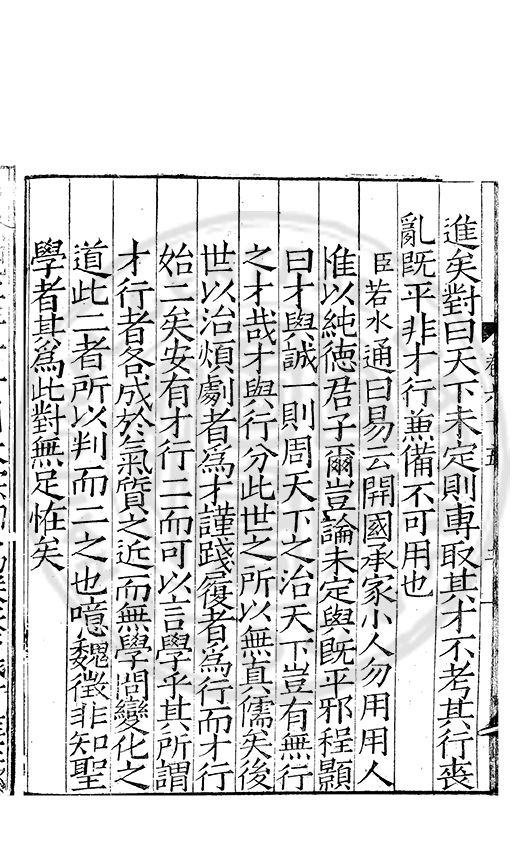 進矣對曰天下未定則專取其才不考其行喪
亂既平非才行兼備不可用也
臣若水通曰易云開國承家小人勿用用人
惟以純德君子爾豈論未定與既平邪程顥
曰才與誠一則周天下之治天下豈有無行
之才哉才與行分此世之所以無真儒矣後
世以治煩劇者為才謹踐履者為行而才行
始二矣安有才行二而可以言學乎其所謂
才行者各成於氣質之近而無學問變化之
道此二者所以判而二之也噫魏徵非知聖
學者其為此對無足恠矣